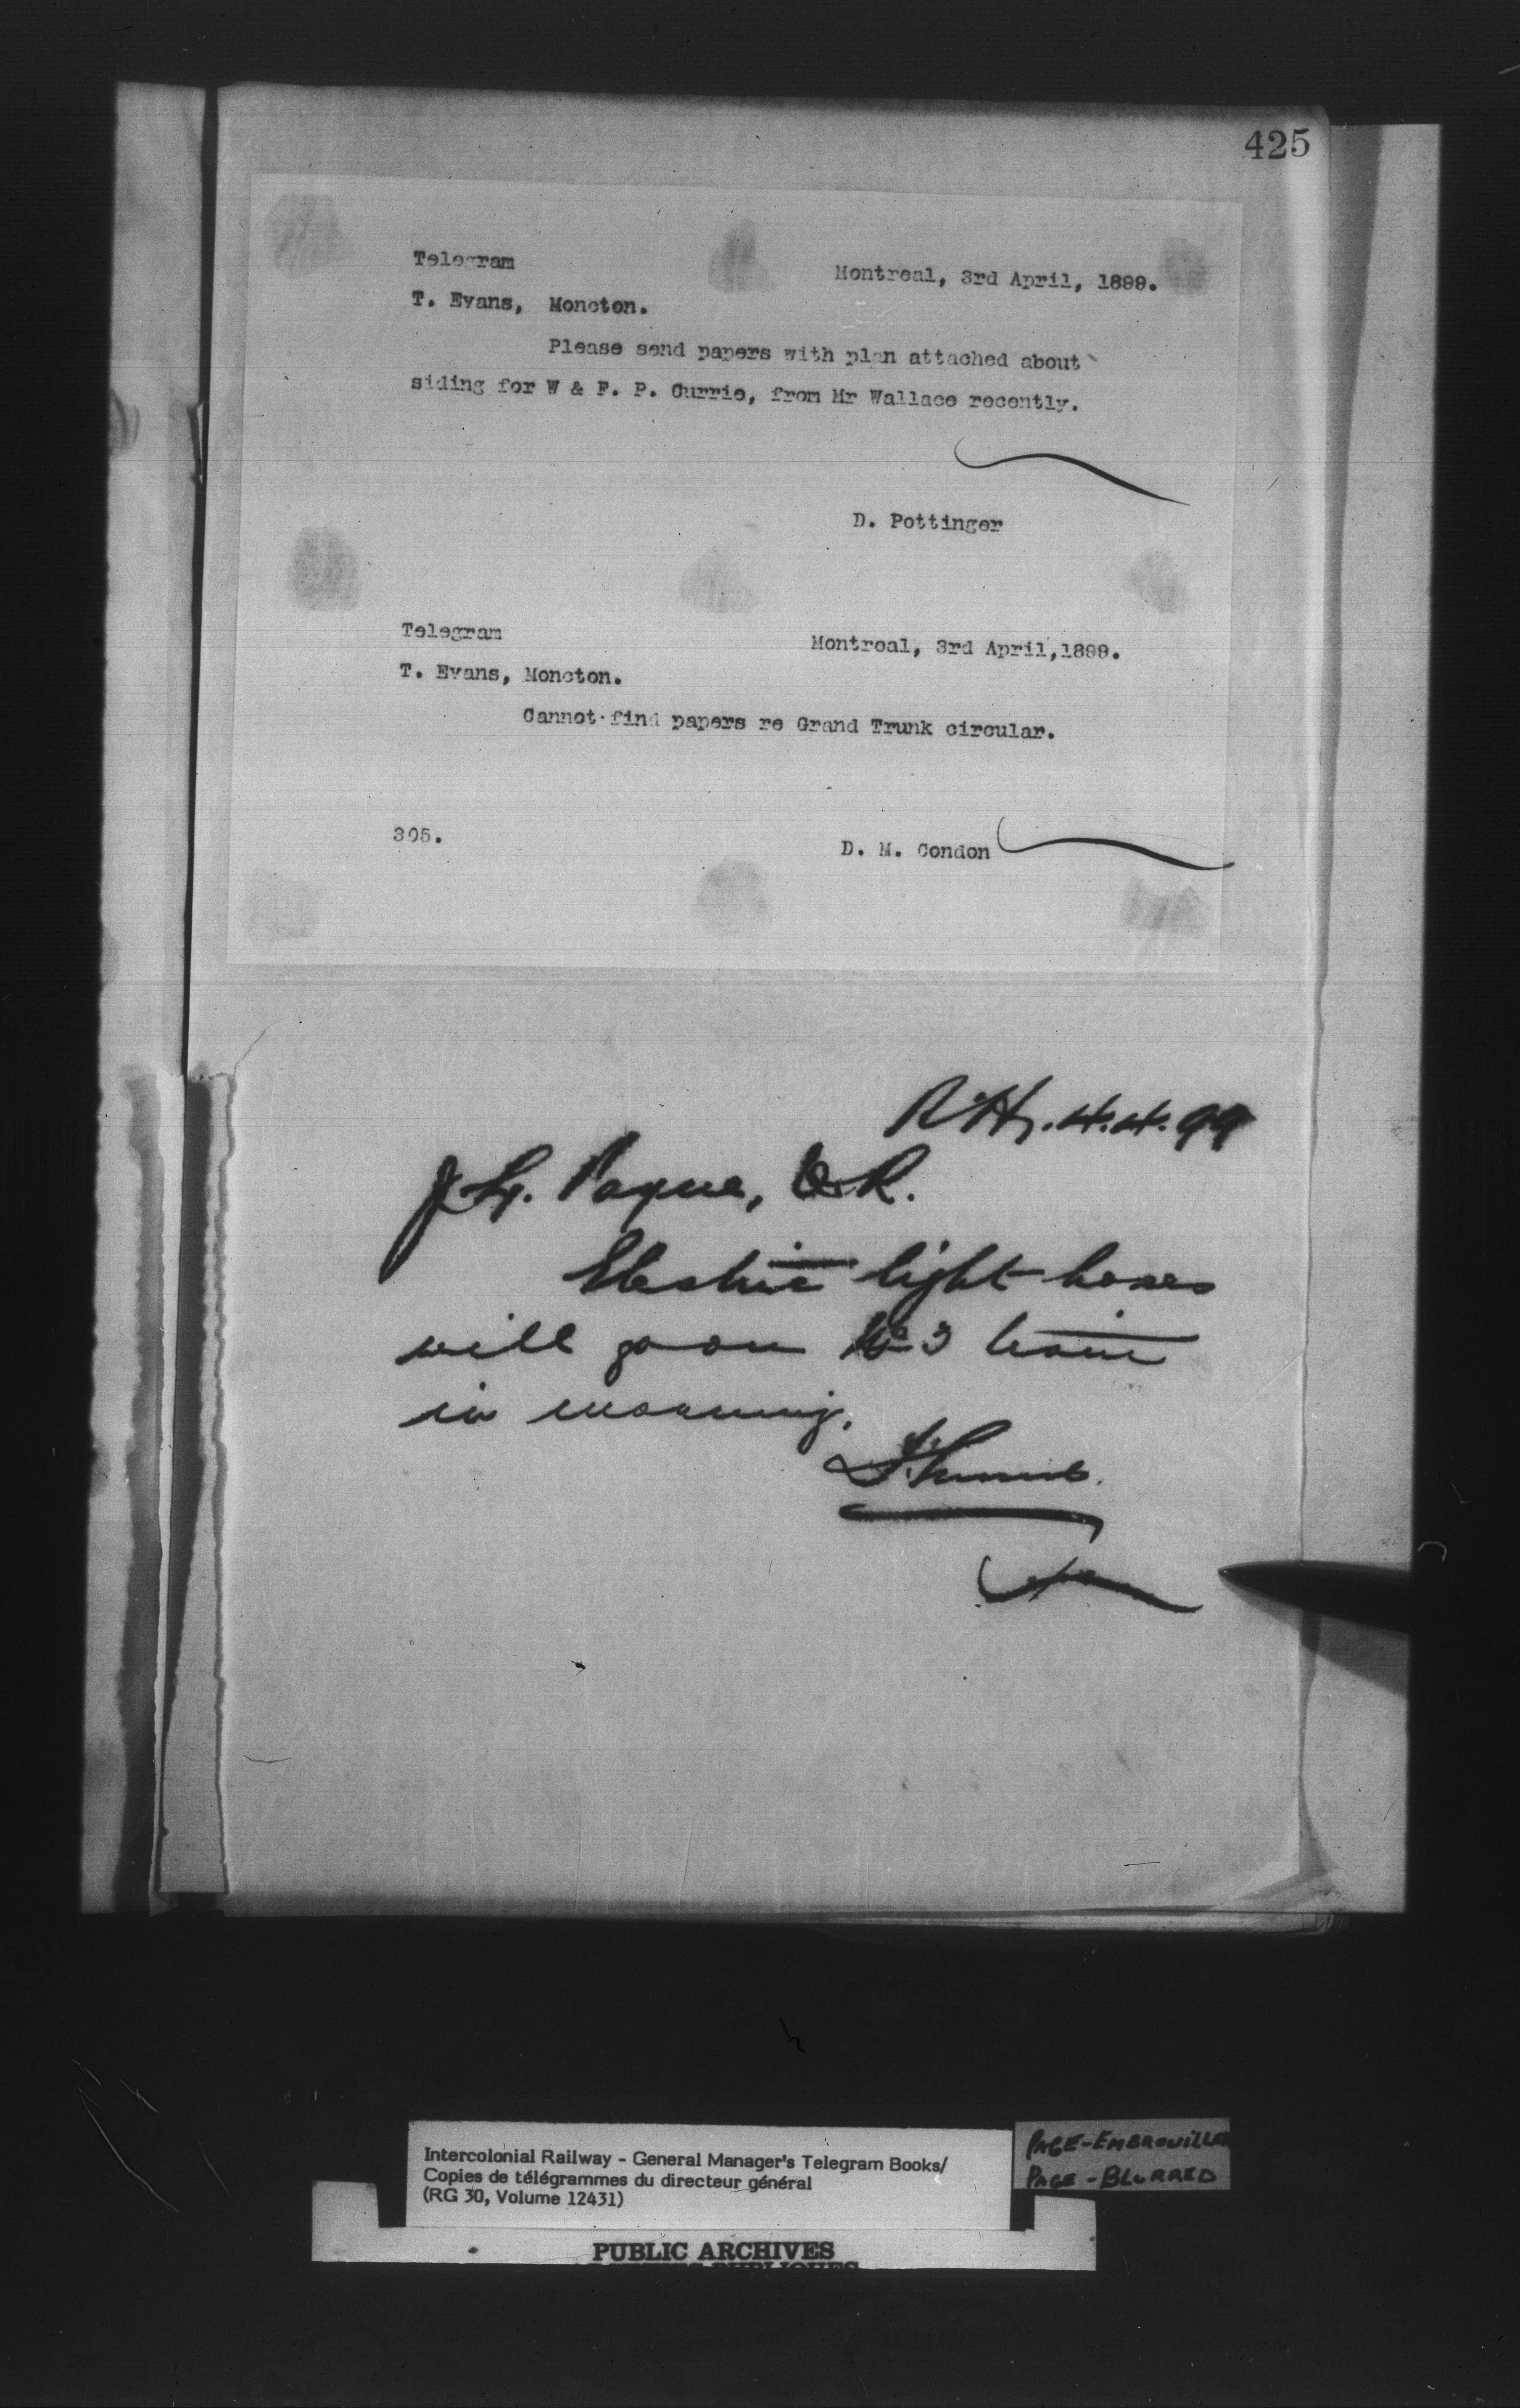 425
Telegram
Montreal, 3rd April, 1899.
T. Evans, Moncton.
Please send papers with plan attached about
siding for W & F. P. Currie, from Mr Wallace recently.
D. Pottinger
Telegram
Montreal, 3rd April, 1899.
T. Evans, Moncton.
Cannot find papers re Grand Trunk circular.
305.
D. M. Condon
4.4.99
Payne,
Electric light boxes
will go on No 3 train
in morning.
Intercolonial Railway - General Manager's Telegram Books/
Copies de télégrammes du directeur général
(RG 30, Volume 12431)
PAGE-EMBROUILLÉE
PAGE-BLURRED
PUBLIC ARCHIVES